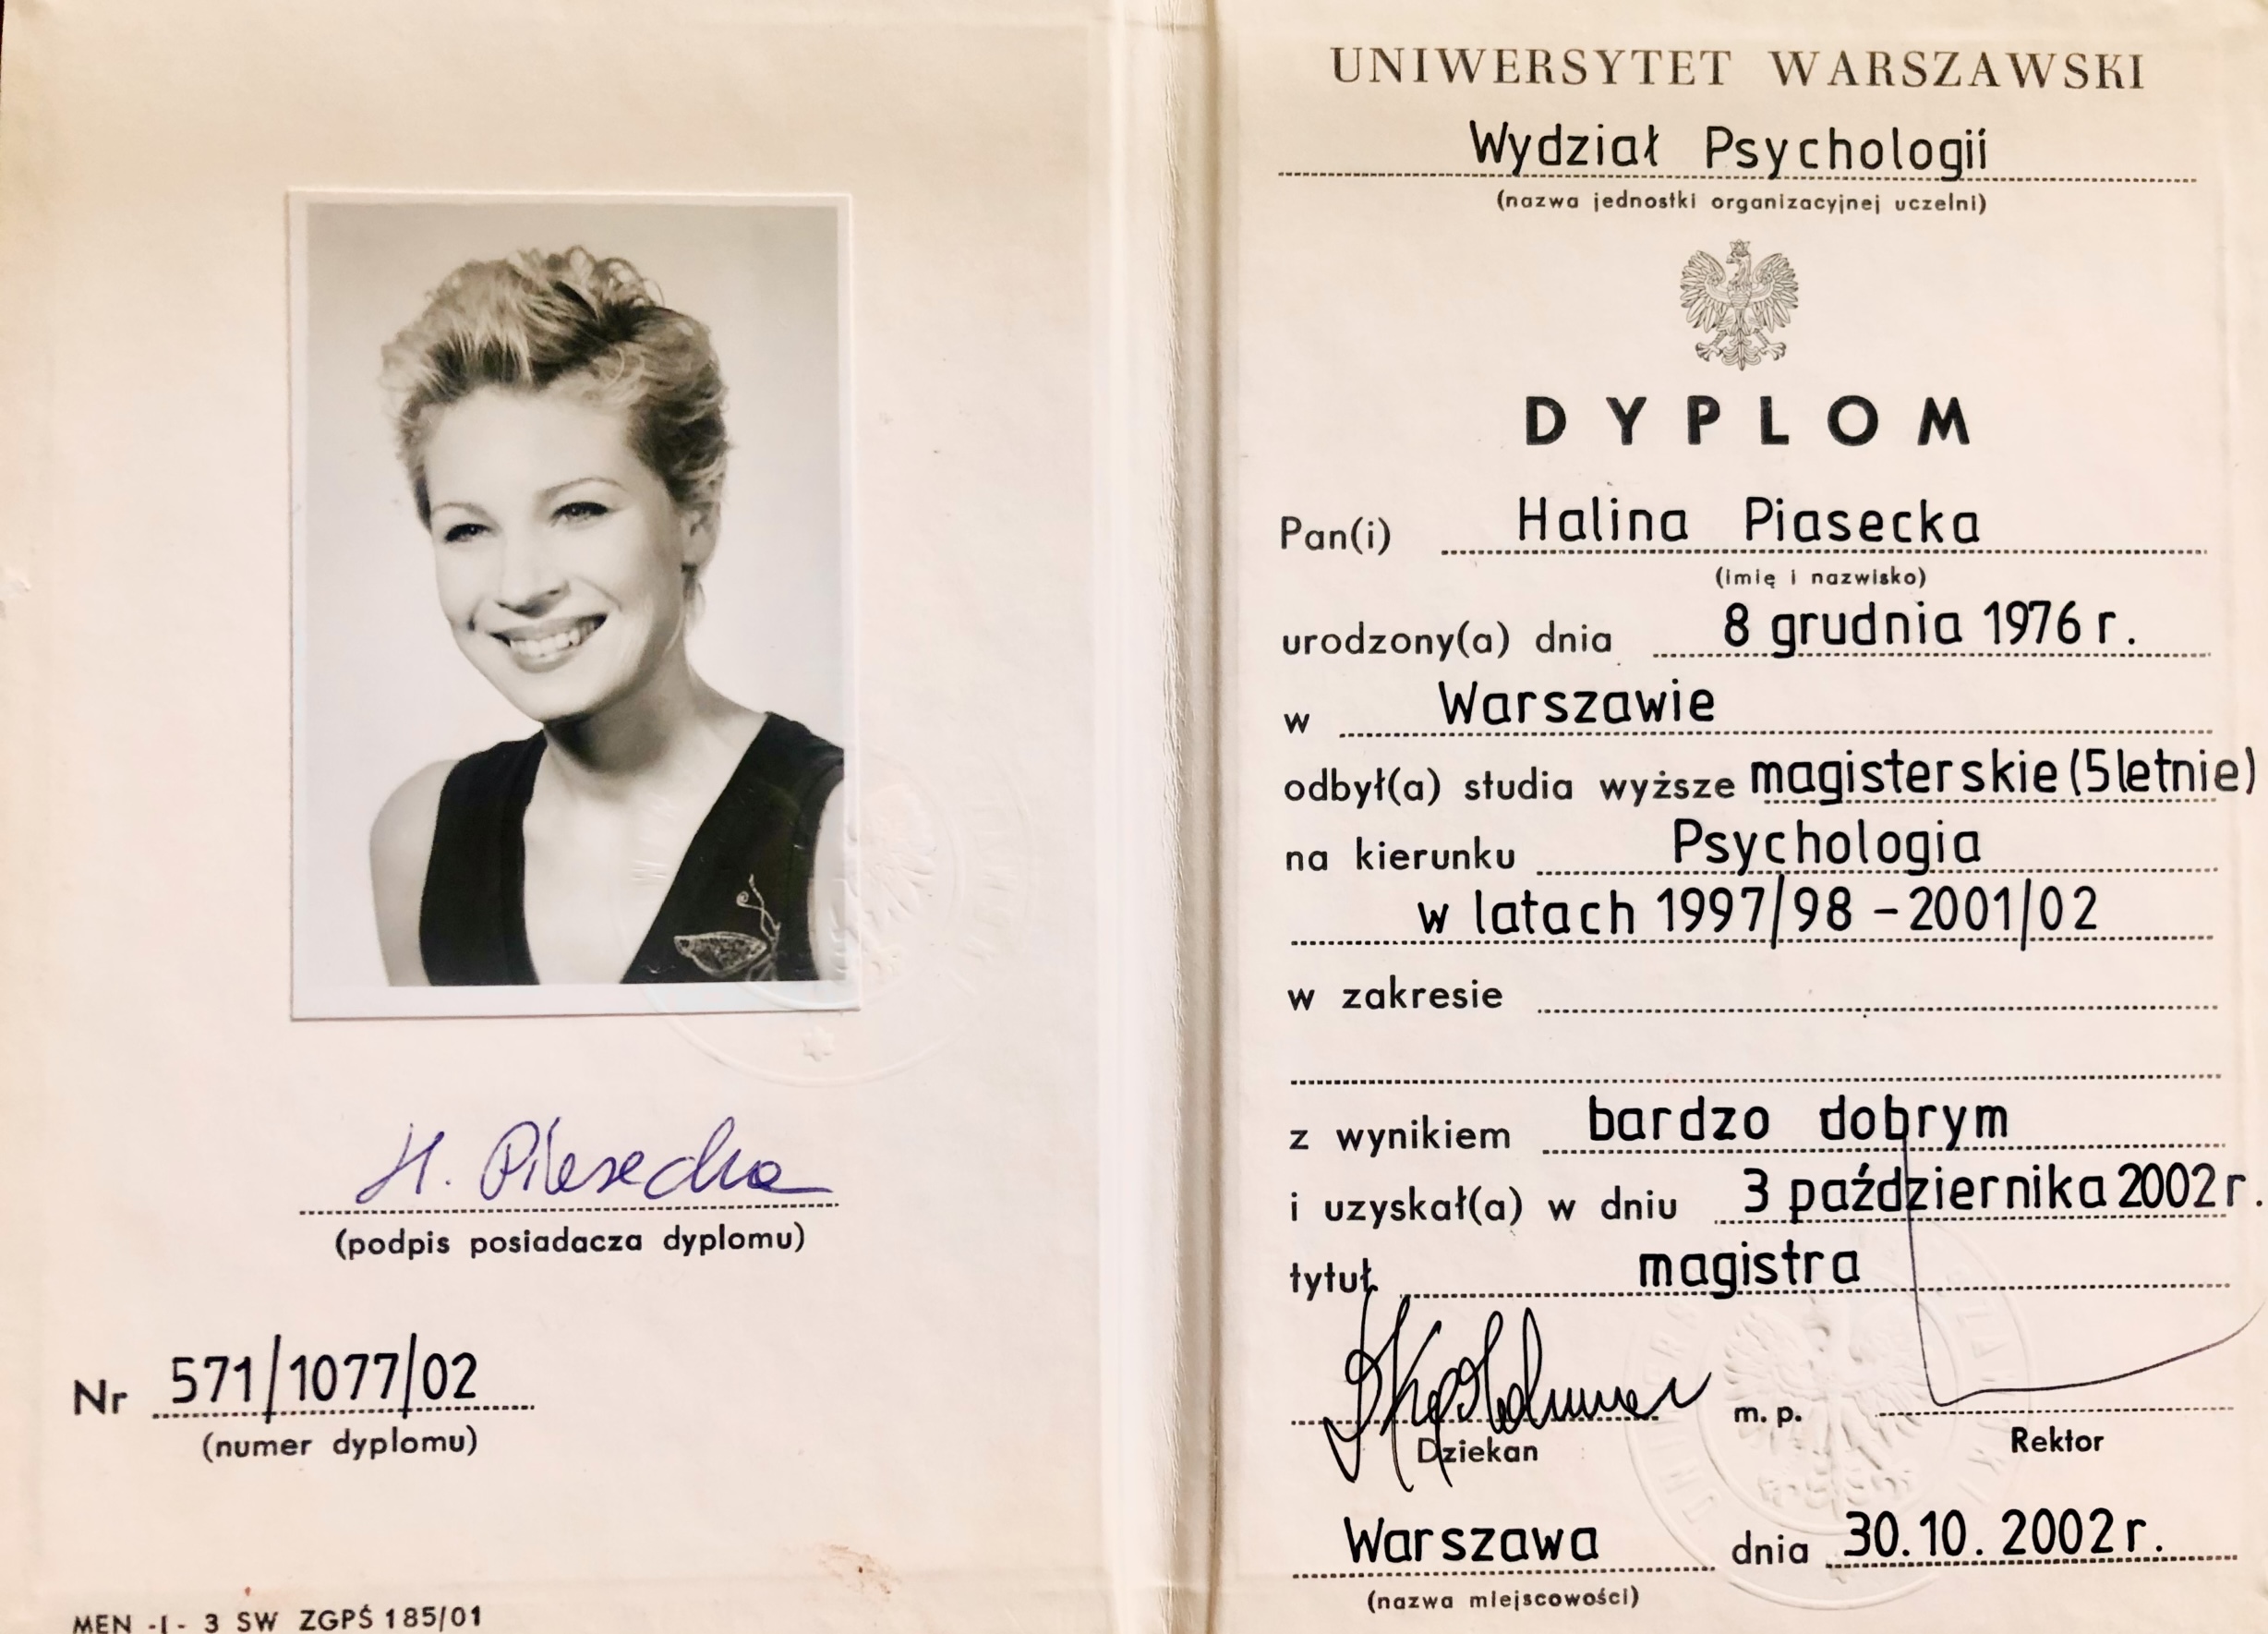 H. Piasecka
(podpis posiadacza dyplomu)
Nr 571/1077/02
(numer dyplomu)
MEN -I- 3 SW ZGPŚ 185/01
UNIWERSYTET WARSZAWSKI
Wydział Psychologii
(nazwa jednostki organizacyjnej uczelni)
DYPLOM
Pan(i) Halina Piasecka
(imię i nazwisko)
urodzony(a) dnia 8 grudnia 1976 r.
w Warszawie
odbył(a) studia wyższe magisterskie (5letnie)
na kierunku Psychologia
w latach 1997/98 - 2001/02
w zakresie
z wynikiem bardzo dobrym
i uzyskał(a) w dniu 3 października 2002 r.
tytuł magistra
m. p.
Dziekan Rektor
Warszawa dnia 30.10. 2002 r.
(nazwa miejscowości)